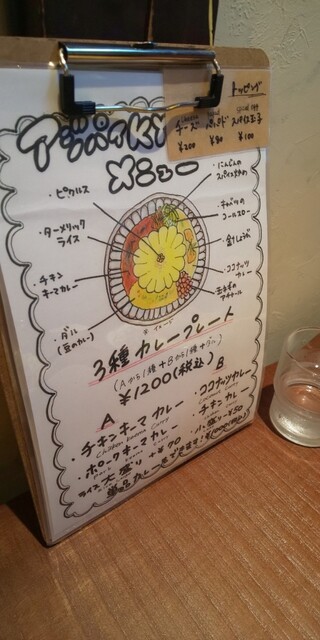 トッピング
チーズ パパド スパイス玉子
¥200 ¥80 ¥100
メニュー
・ピクルス
・ターメリック
ライス
・チキン
キーマカレー
・ダル
(豆のカレー)
・にんじんの
スパイス炒め
・キャベツの
コールスロー
・ココナッツ
カレー
・玉ねぎの
アチャール
3種カレープレート
(Aから1種+Bから1種+ダル)
¥1200(税込)
A
・チキンキーマカレー
chicken keema curry
・ポークキーマカレー
B
・ココナッツカレー
・チキンカレー
chicken curry
ライス大盛り+¥70
小盛り-¥50